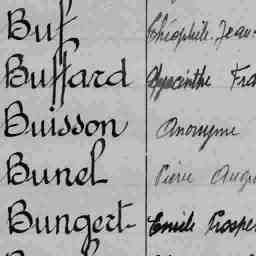 Buf Théophile Jean-
Buffard Hyacinthe Fra
Buisson Anonyme
Bunel Pierre Augu
Bungert Emile Prosper